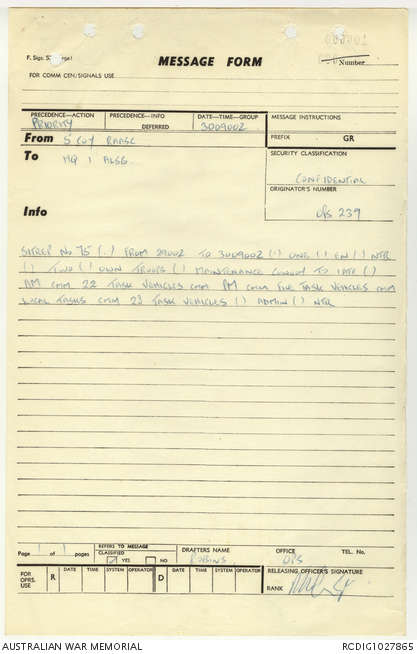 000001
F. Sigs.
MESSAGE FORM
Number
FOR COMM CEN/SIGNALS USE
PRECEDENCE—ACTION
PRIORITY
PRECEDENCE—INFO
DEFERRED
DATE—TIME—GROUP
300900Z
MESSAGE INSTRUCTIONS
From 5 COY RAASC
PREFIX GR
To HQ 1 ALSG
SECURITY CLASSIFICATION
CONFIDENTIAL
ORIGINATOR'S NUMBER
Info
OPS 239
SITREP NO 75 (.) FROM 2900Z TO 300900Z (.) ONE (.) EN (.) NTR
(.) TWO (.) OWN TROOPS (.) MAINTENANCE CONVOY TO 1ATF (.)
AM CMM 22 TASK VEHICLES CMM PM CMM FIVE TASK VEHICLES CMM
LOCAL TASKS CMM 23 TASK VEHICLES (.) ADMIN (.) NTR
Page 1 of 1 pages
REFERS TO MESSAGE
CLASSIFIED
YES NO
DRAFTERS NAME
OFFICE
OPS
TEL. No.
FOR OPRS. USE
R DATE TIME SYSTEM OPERATOR D DATE TIME SYSTEM OPERATOR
RELEASING OFFICER'S SIGNATURE
RANK
AUSTRALIAN WAR MEMORIAL
RCDIG1027865